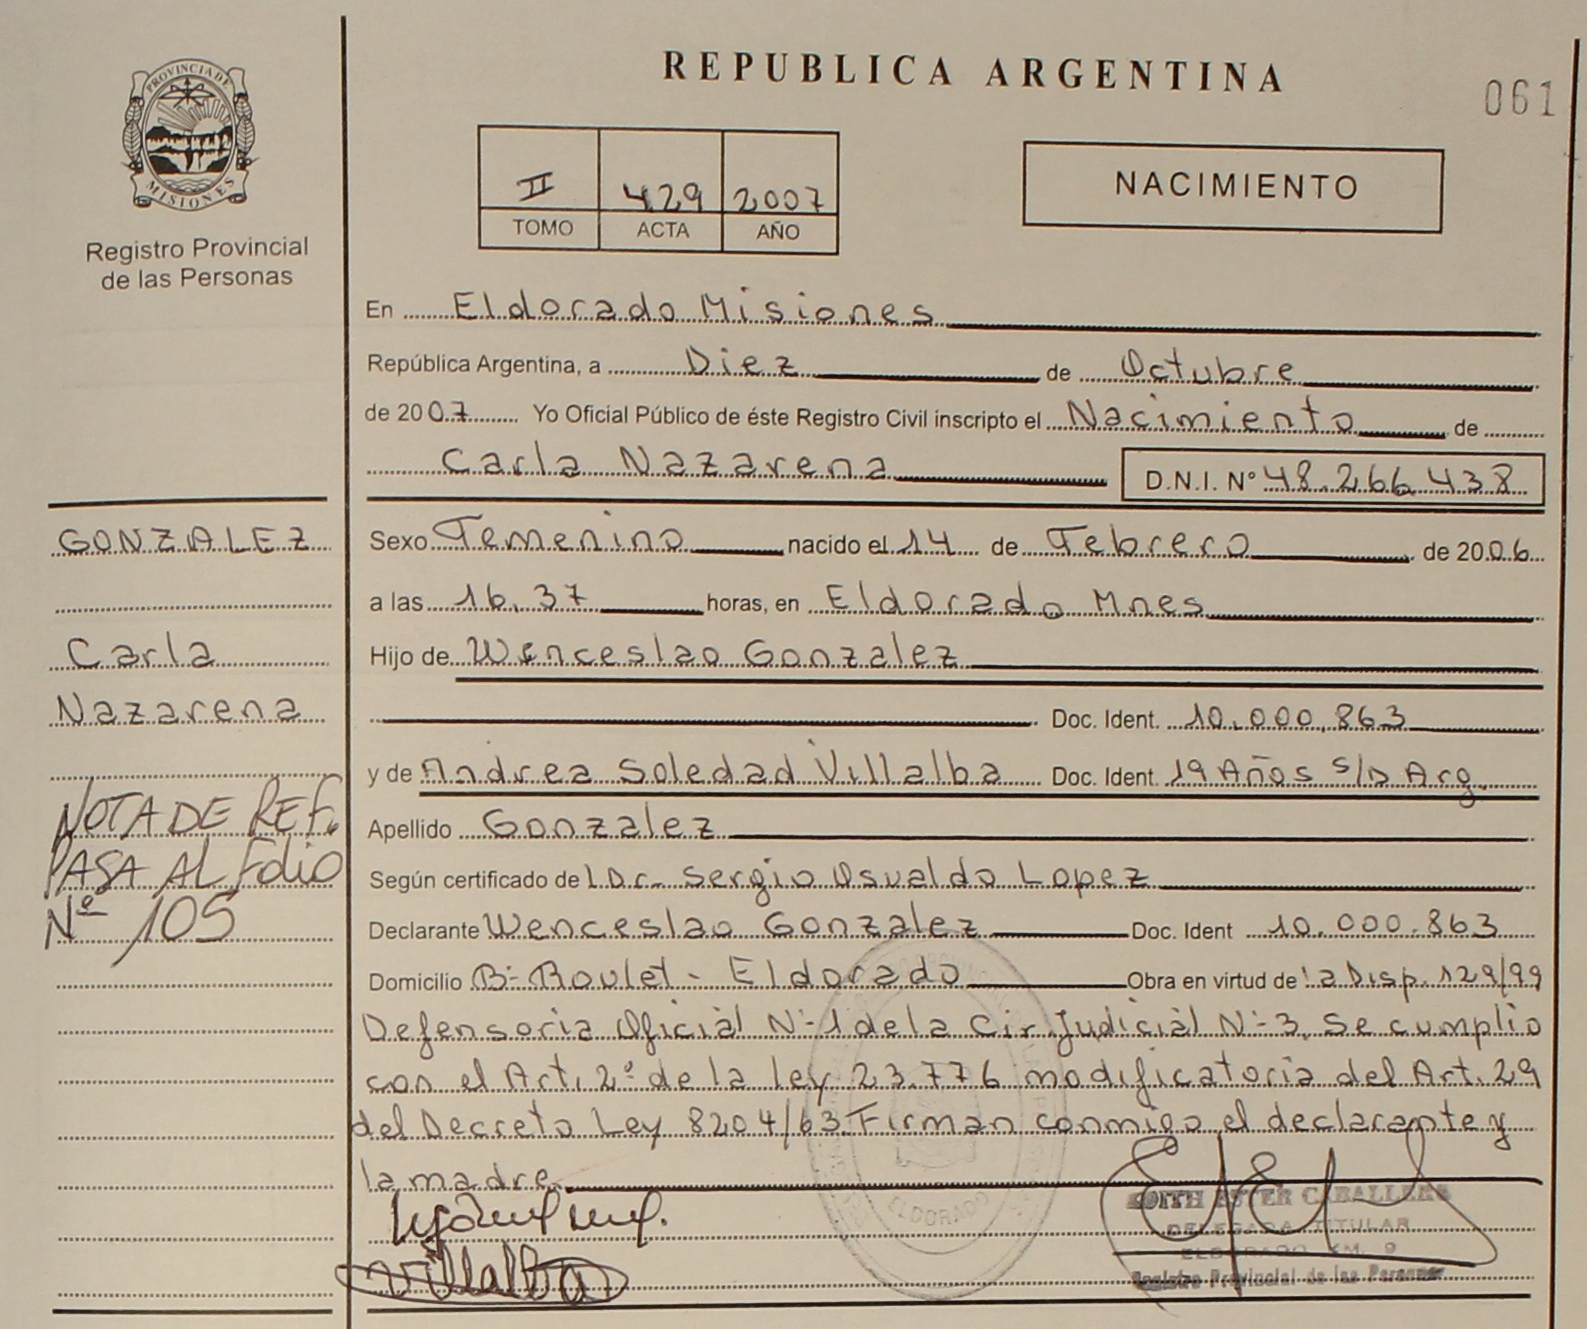 REPUBLICA ARGENTINA
061
PROVINCIA DE
MISIONES
Registro Provincial
de las Personas
II 429 2007
TOMO ACTA AÑO
NACIMIENTO
En Eldorado Misiones
República Argentina, a Diez de Octubre
de 2007 Yo Oficial Público de éste Registro Civil inscripto el Nacimiento de
Carla Nazarena D.N.I. Nº 48.266.438
GONZALEZ
Carla
Nazarena
NOTA DE REF.
PASA AL Folio
Nº 105
Sexo Femenino nacido el 14 de Febrero de 2006
a las 16.37 horas, en Eldorado Mnes
Hijo de Wenceslao Gonzalez
Doc. Ident. 10.000.863
y de Andrea Soledad Villalba Doc. Ident. 19 Años s/D Arg.
Apellido Gonzalez
Según certificado del Dr. Sergio Osvaldo Lopez
Declarante Wenceslao Gonzalez Doc. Ident 10.000.863
Domicilio Bº Roulet - Eldorado Obra en virtud de la Disp. 129/99
Defensoria Oficial Nº 1 de la Cir. Judicial Nº 3. Se cumplio
con el Art. 2º de la ley 23.776 modificatoria del Art. 29
del Decreto Ley 8204/63. Firman conmigo el declarante y
la madre.
Villalba
ELDORADO
EDITH ESTER CABALLERO
DELEGADA TITULAR
ELDORADO KM. 9
Registro Provincial de las Personas